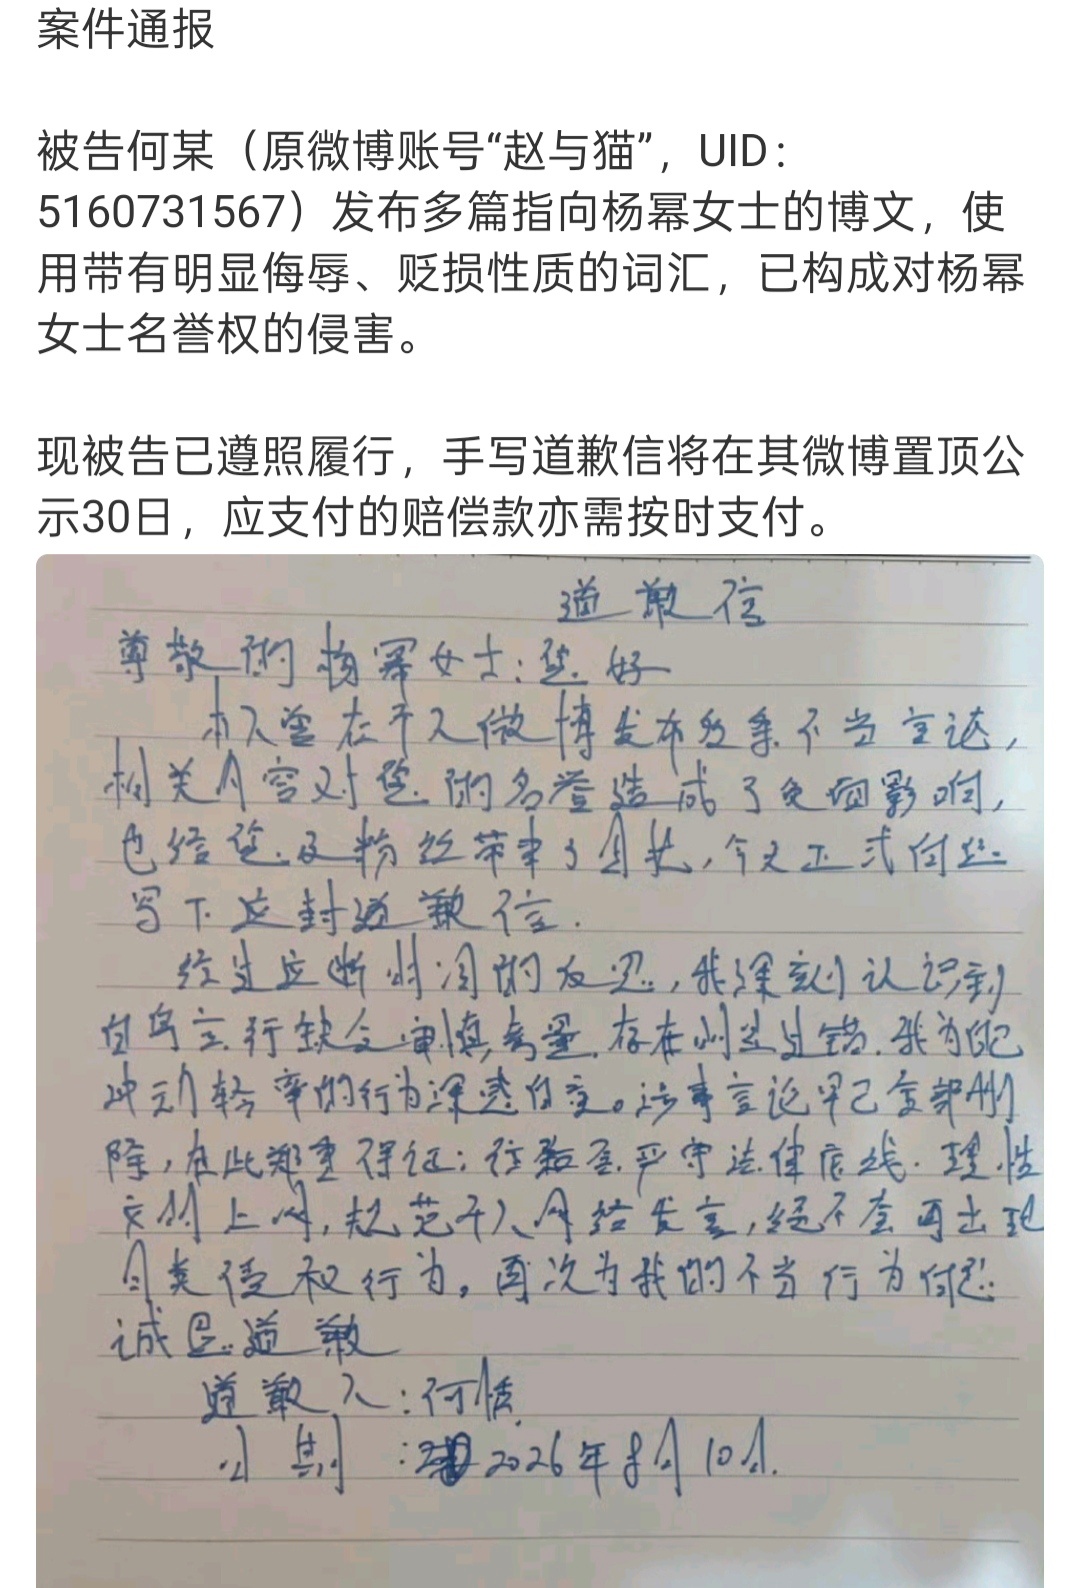 案件通报
被告何某（原微博账号“赵与猫”，UID：
5160731567）发布多篇指向杨幂女士的博文，使
用带有明显侮辱、贬损性质的词汇，已构成对杨幂
女士名誉权的侵害。
现被告已遵照履行，手写道歉信将在其微博置顶公
示30日，应支付的赔偿款亦需按时支付。
道歉信
尊敬的杨幂女士：您好
本人曾在个人微博发布多条不当言论，
相关内容对您的名誉造成了负面影响，
也给您及粉丝带来了困扰，今天正式向您
写下这封道歉信.
经过这断时间的反思，我深刻认识到
自身言行缺乏审慎考量，存在明显过错.我为自己
冲动轻率的行为深感自责。涉事言论早已全部删
除，在此郑重保证：往后会严守法律底线.理性
文明上网，规范个人网络发言，绝不会再出现
同类侵权行为。再次为我的不当行为向您
诚恳道歉
道歉人：何恬
日期：2026年8月10日.